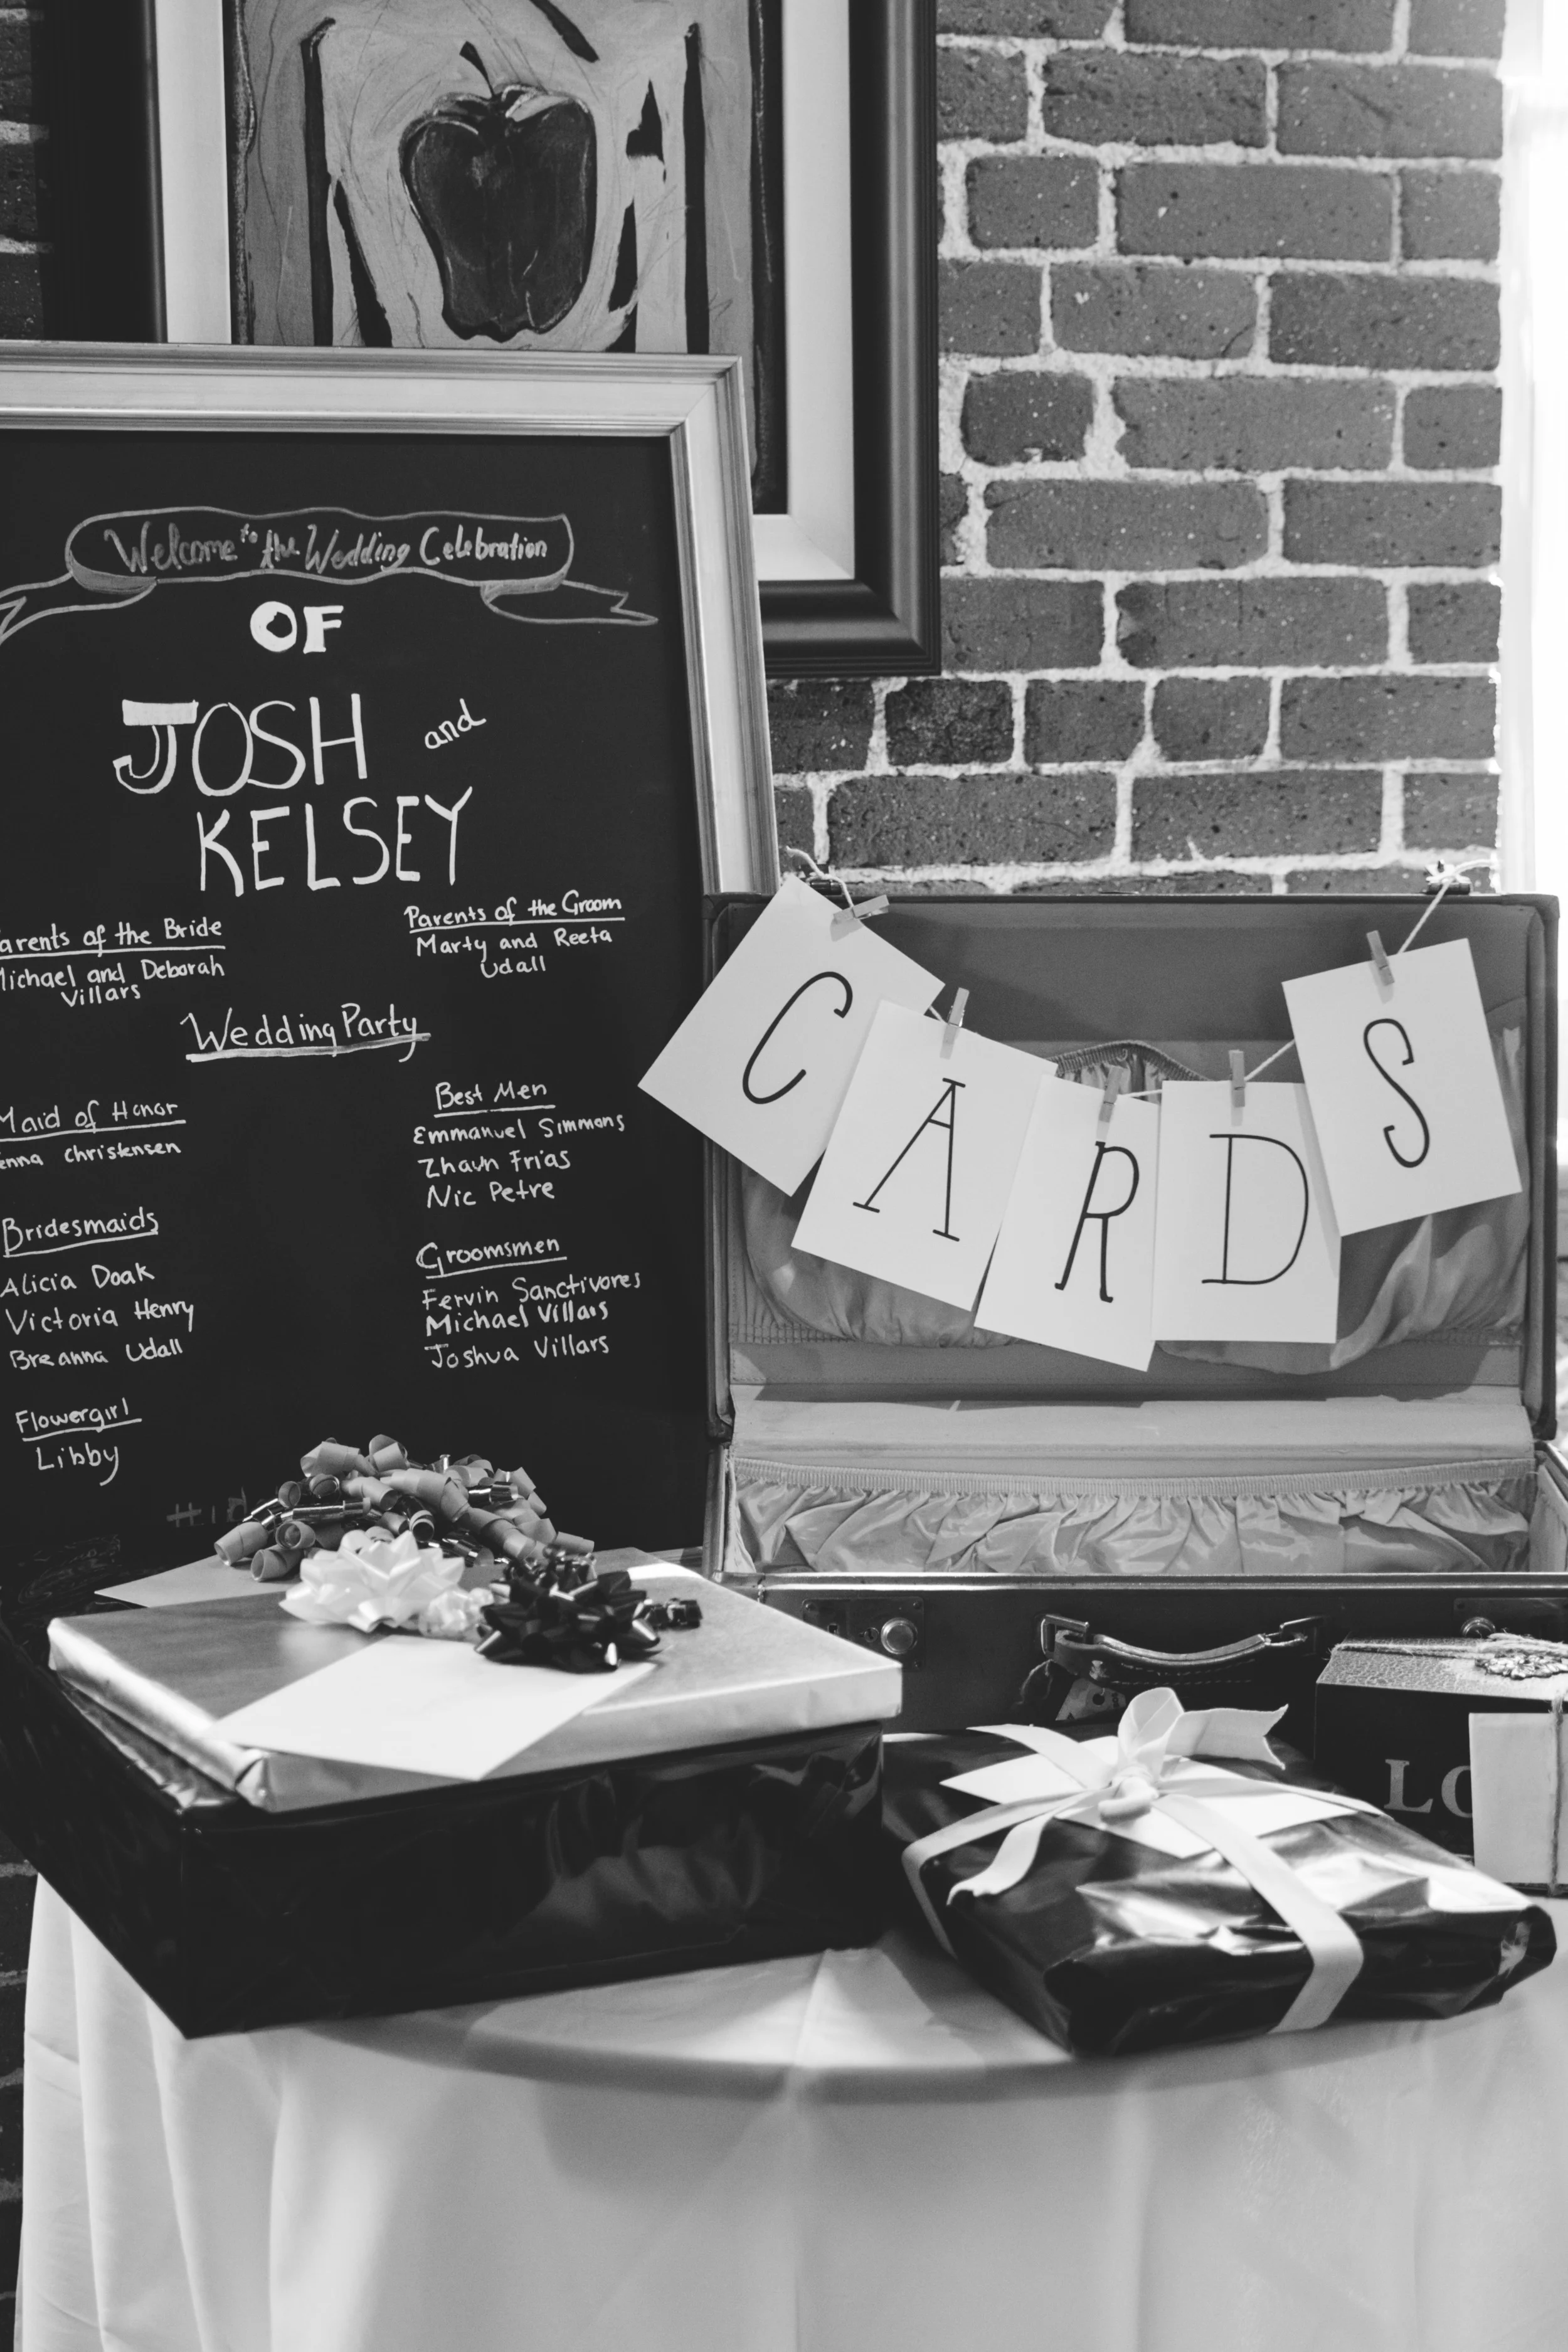 Welcome to the Wedding Celebration
OF
JOSH and
KELSEY
arents of the Bride
Michael and Deborah
Villars
Parents of the Groom
Marty and Reeta
Udall
Wedding Party
Maid of Honor
enna Christensen
Bridesmaids
Alicia Doak
Victoria Henry
Breanna Udall
Flowergirl
Libby
Best Men
Emmanuel Simmons
Zhaun Frias
Nic Petre
Groomsmen
Fervin Sanctivores
Michael Villars
Joshua Villars
CARDS
LO